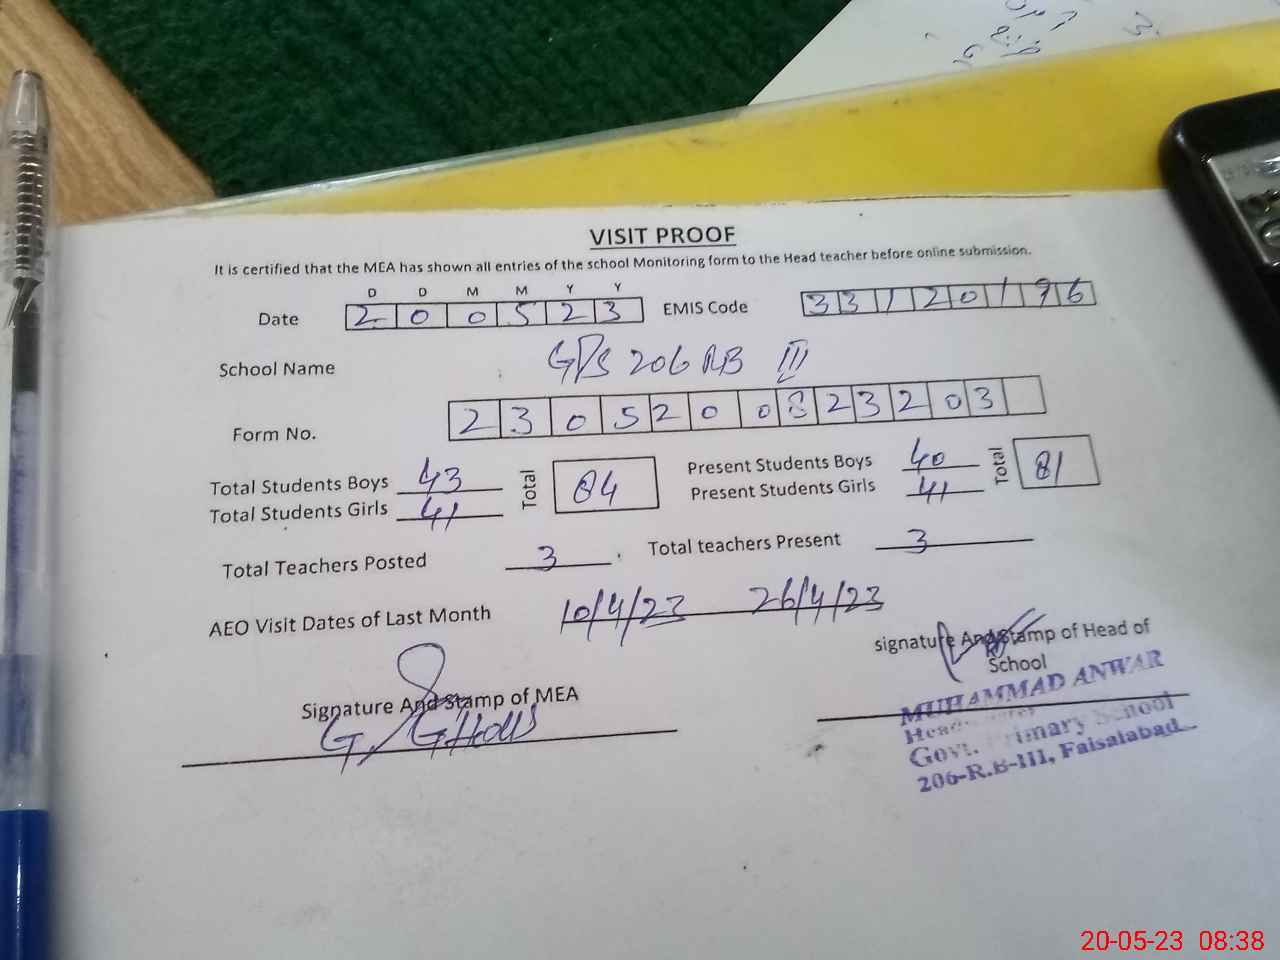 VISIT PROOF
It is certified that the MEA has shown all entries of the school Monitoring form to the Head teacher before online submission.
D D M M Y Y
Date 2 0 0 5 2 3 EMIS Code 3 3 1 2 0 1 9 6
School Name GPS 206 RB III
Form No. 2 3 0 5 2 0 0 8 2 3 2 0 3
Total Students Boys 43 Total 84 Present Students Boys 40 Total 81
Total Students Girls 41 Present Students Girls 41
Total Teachers Posted 3 Total teachers Present 3
AEO Visit Dates of Last Month 10/4/23 26/4/23
signature And Stamp of Head of
School
Signature And Stamp of MEA
MUHAMMAD ANWAR
Govt. Primary School
206-R.B-III, Faisalabad
20-05-23 08:38